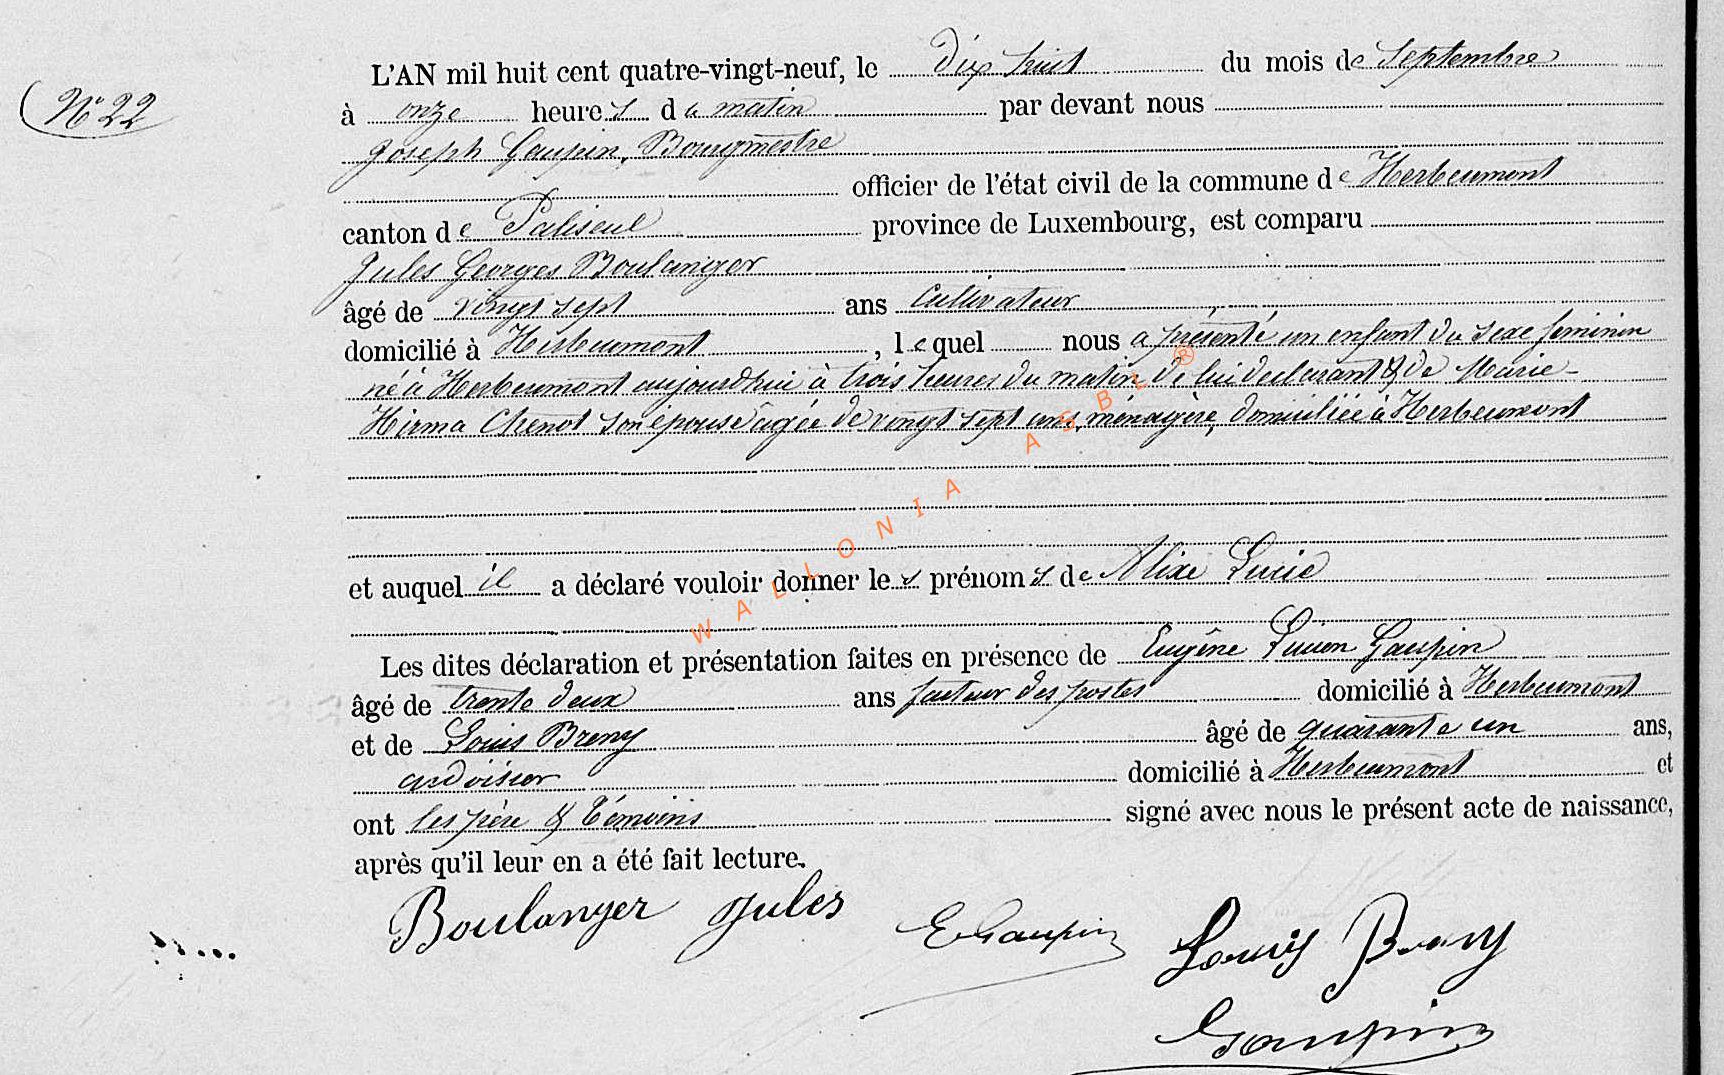 L'AN mil huit cent quatre-vingt-neuf, le dix huit du mois de Septembre
N° 22
à onze heures du matin par devant nous
Joseph Gaupin, Bourgmestre
officier de l'état civil de la commune de Herbeumont
canton de Paliseul province de Luxembourg, est comparu
Jules Georges Boulanger
âgé de vingt sept ans cultivateur
domicilié à Herbeumont, lequel nous a présenté un enfant du sexe feminin
né à Herbeumont aujourdhui à trois heures du matin de lui declarant & de Marie-
Hirma Chenot son epouse âgée de vingt sept ans, ménagère, domiciliée à Herbeumont
et auquel il a déclaré vouloir donner les prénoms de Alixe Lucie
Les dites déclaration et présentation faites en présence de Eugêne Lucien Gaupin
âgé de trente deux ans facteur des postes domicilié à Herbeumont
et de Louis Breny âgé de quarante un ans,
ardoisier domicilié à Herbeumont et
ont les père & témoins signé avec nous le présent acte de naissance,
après qu'il leur en a été fait lecture.
Boulanger Jules
EGaupin
Louis Breny
Gaupin
WALLONIA ASBL ®